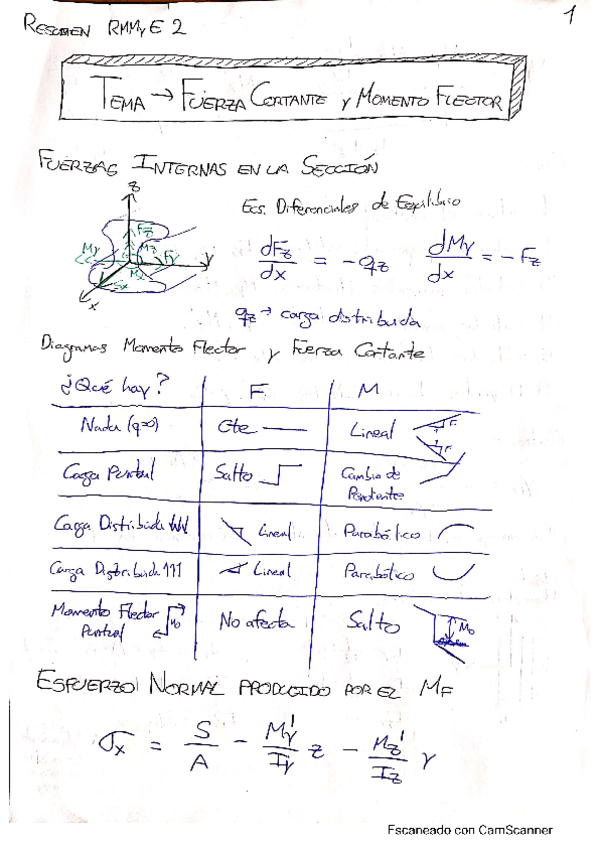 RESUMEN RMMyE 2
1
TEMA → FUERZA CORTANTE Y MOMENTO FLECTOR
FUERZAS INTERNAS EN LA SECCIÓN
Ecs. Diferenciales de Equilibrio
z
Fz
My
Mz
Fy
y
Mx
x
dFz/dx = -qz
dMy/dx = -Fz
qz → carga distribuida
Diagramas Momento Flector y Fuerza Cortante
¿Qué hay? F M
Nada (q=0) Cte Lineal
Carga Puntual Salto Cambio de Pendientes
Carga Distribuida ↓↓↓ Lineal Parabólico
Carga Distribuida ↑↑↑ Lineal Parabólico
Momento Flector Puntual Mo No afecta Salto Mo
ESFUERZO NORMAL PRODUCIDO POR EL MF
σx = S/A - My'/Iy z - Mz'/Iz y
Escaneado con CamScanner